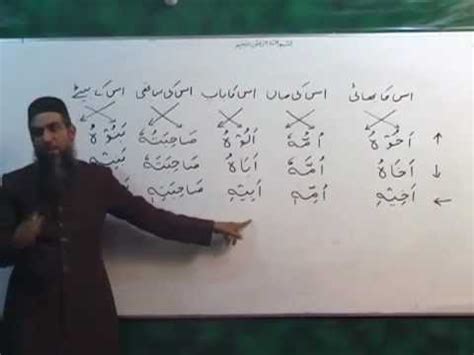 بسم اللہ الرحمن الرحیم
اس کا بھائی اس کی ماں اس کا باپ اس کی ساتھی اس کے بیٹے
↑ اَخُوْهُ اُمُّهٗ اَبُوْهُ صَاحِبَتُهٗ بَنُوْهُ
↓ اَخَاهُ اُمَّهٗ اَبَاهُ صَاحِبَتَهٗ بَنِيْهِ
← اَخِيْهِ اُمِّهٖ اَبِيْهِ صَاحِبَتِهٖ